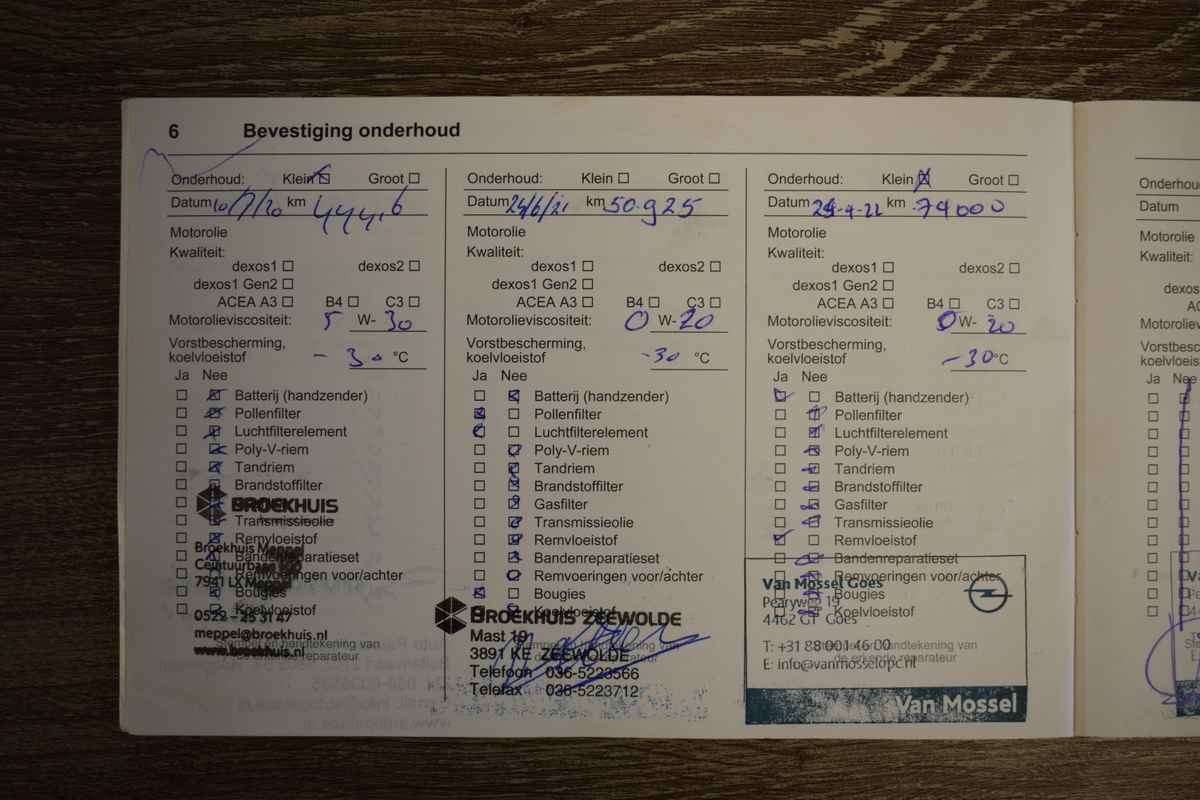 6 Bevestiging onderhoud
Onderhoud: Klein Groot
Datum 10/7/20 km
Motorolie
Kwaliteit:
dexos1 dexos2
dexos1 Gen2
ACEA A3 B4 C3
Motorolieviscositeit: 5 W- 30
Vorstbescherming,
koelvloeistof - 30 °C
Ja Nee
Batterij (handzender)
Pollenfilter
Luchtfilterelement
Poly-V-riem
Tandriem
Brandstoffilter
BROEKHUIS
Transmissieolie
Remvloeistof
Broekhuis Meppel
Bandenreparatieset
Ceintuurbaan
Remvoeringen voor/achter
7941 LX Meppel
Bougies
Koelvloeistof
0522 - 25 31 47
meppel@broekhuis.nl
Stempel en handtekening van
www.broekhuis.nl
de erkende reparateur
Onderhoud: Klein Groot
Datum 24/6/21 km 50.925
Motorolie
Kwaliteit:
dexos1 dexos2
dexos1 Gen2
ACEA A3 B4 C3
Motorolieviscositeit: 0 W- 20
Vorstbescherming,
koelvloeistof -30 °C
Ja Nee
Batterij (handzender)
Pollenfilter
Luchtfilterelement
Poly-V-riem
Tandriem
Brandstoffilter
Gasfilter
Transmissieolie
Remvloeistof
Bandenreparatieset
Remvoeringen voor/achter
Bougies
Koelvloeistof
BROEKHUIS ZEEWOLDE
Mast 19
3891 KE ZEEWOLDE
Telefoon 036-5223566
Telefax 036-5223712
Onderhoud: Klein Groot
Datum km 74000
Motorolie
Kwaliteit:
dexos1 dexos2
dexos1 Gen2
ACEA A3 B4 C3
Motorolieviscositeit: 0 W- 20
Vorstbescherming,
koelvloeistof -30 °C
Ja Nee
Batterij (handzender)
Pollenfilter
Luchtfilterelement
Poly-V-riem
Tandriem
Brandstoffilter
Gasfilter
Transmissieolie
Remvloeistof
Bandenreparatieset
Remvoeringen voor/achter
Bougies
Koelvloeistof
Van Mossel Goes
Pearyweg 19
4462 GT Goes
T: +31 88 001 46 00
handtekening van
E: info@vanmosselopc.nl
de erkende reparateur
Van Mossel
Onderhoud:
Datum
Motorolie
Kwaliteit:
dexos
Ja Nee